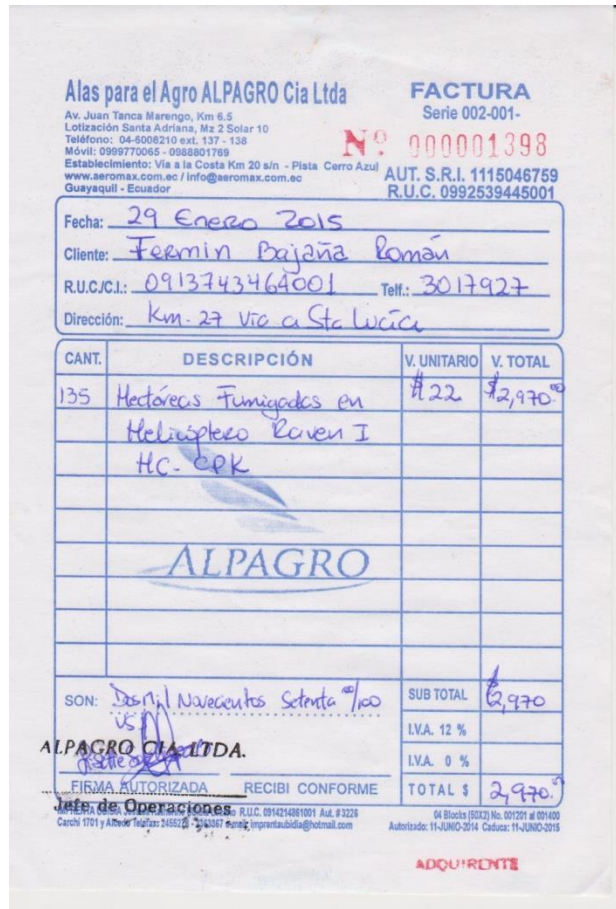 Alas para el Agro ALPAGRO Cia Ltda
Av. Juan Tanca Marengo, Km 6.5
Lotización Santa Adriana, Mz 2 Solar 10
Teléfono: 04-6008210 ext. 137 - 138
Móvil: 0999770065 - 0988801769
Establecimiento: Via a la Costa Km 20 s/n - Pista Cerro Azul
www.aeromax.com.ec / info@aeromax.com.ec
Guayaquil - Ecuador
FACTURA
Serie 002-001-
Nº 000001398
AUT. S.R.I. 1115046759
R.U.C. 0992539445001
Fecha: 29 Enero 2015
Cliente: Fermin Bajaña Román
R.U.C./C.I.: 0913743464001 Telf.: 3017927
Dirección: Km. 27 Via a Sta Lucía
CANT. DESCRIPCIÓN V. UNITARIO V. TOTAL
135 Hectáreas Fumigadas en $22 $2,970.00
Helicóptero Raven I
HC-CPK
ALPAGRO
SON: Dos mil Novecientos Setenta 00/100
US
SUB TOTAL $2,970
I.V.A. 12 %
I.V.A. 0 %
TOTAL $ 2,970.00
ALPAGRO CIA. LTDA.
FIRMA AUTORIZADA RECIBI CONFORME
Jefe de Operaciones
R.U.C. 0914214861001 Aut. # 3226
Carchi 1701 y
imprentaubidia@hotmail.com
04 Blocks (50X2) No. 001201 al 001400
Autorizado: 11-JUNIO-2014 Caduca: 11-JUNIO-2015
ADQUIRENTE